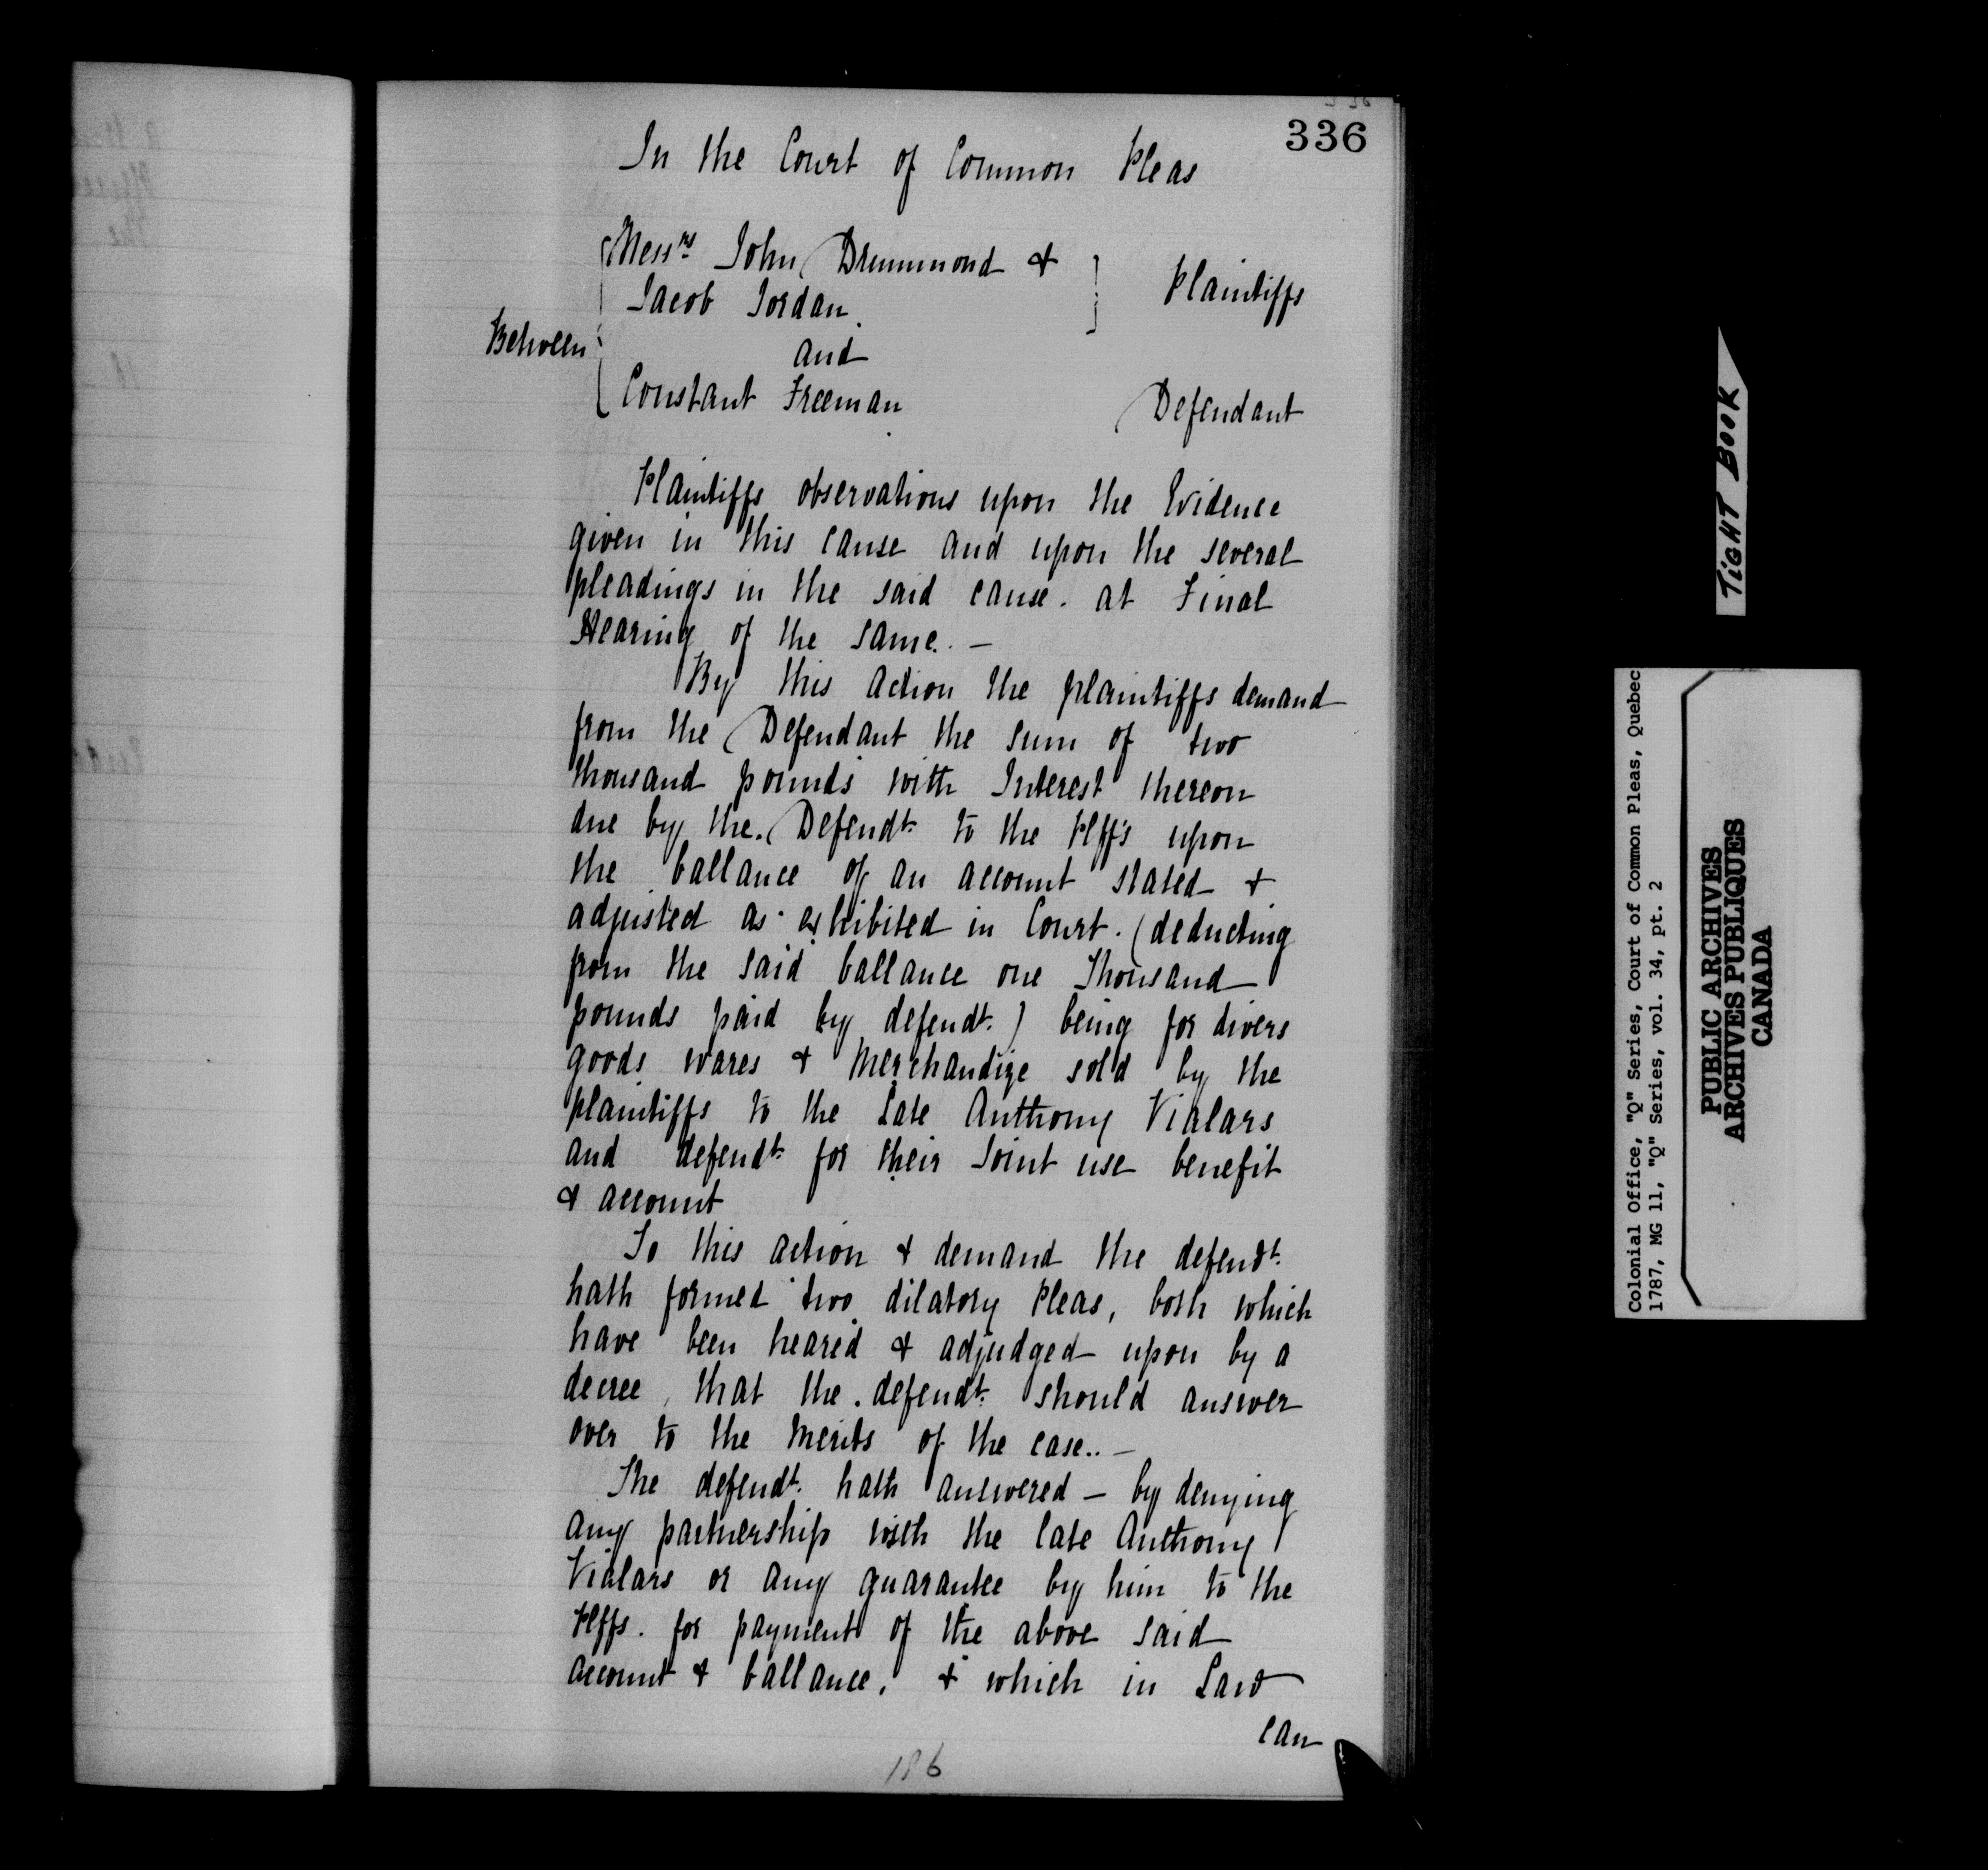 336
In the Court of Common Pleas
Messrs John Drummond &
Jacob Jordan
Plaintiffs
Between
and
Constant Freeman
Defendant
Plaintiffs observations upon the Evidence
given in this cause and upon the several
pleadings in the said cause. at Final
Hearing of the same. —
By this action the plaintiffs demand
from the Defendant the sum of two
thousand pounds with Interest thereon
due by the Defendt. to the Plffs upon
the ballance of an account stated &
adjusted as exhibited in Court. (deducting
from the said ballance one Thousand
pounds paid by defendt.) being for divers
goods wares & Merchandize sold by the
plaintiffs to the Late Anthony Vialars
and defendt. for their Joint use benefit
& account
To this action & demand the defendt.
hath formed two dilatory Pleas, both which
have been heared & adjudged upon by a
decree, that the defendt. should answer
over to the Merits of the case.. —
The defendt. hath answered — by denying
any partnership with the late Anthony
Vialars or any guarantee by him to the
Plffs. for payment of the above said
account & ballance, & which in Law
can
186
TIGHT BOOK
Colonial Office, "Q" Series, Court of Common Pleas, Quebec
1787, MG 11, "Q" Series, vol. 34, pt. 2
PUBLIC ARCHIVES
ARCHIVES PUBLIQUES
CANADA